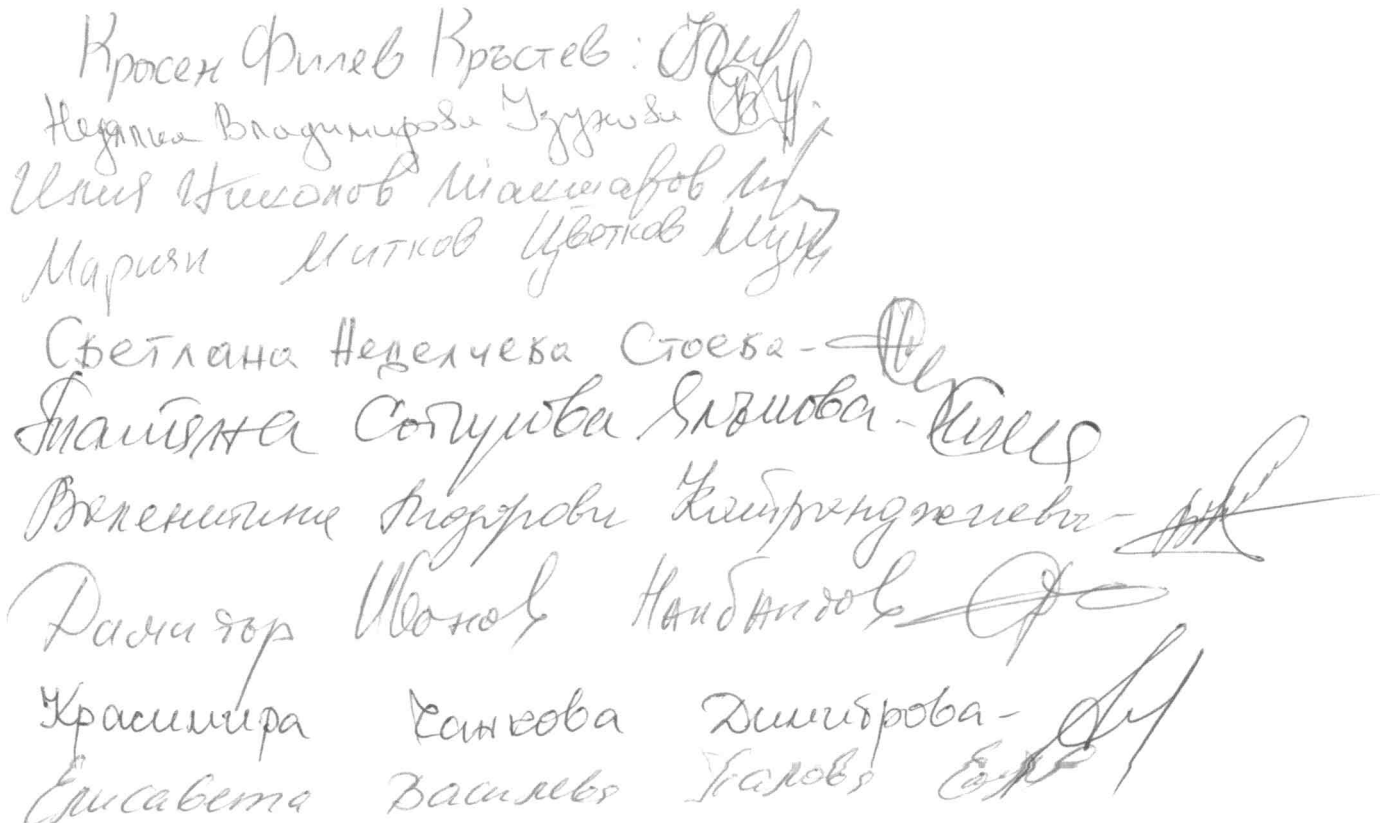 Красен Филев Кръстев:
Недялка Владимирова Узунова
Илия Николов Шакшаров
Мариян Митков Цветков
Светлана Неделчева Стоева -
Татяна Ялъмова -
Валентина Тодорова Кайранджиева -
Димитър Иванов Налбантов
Красимира Цанкова Димитрова -
Елисавета Василева